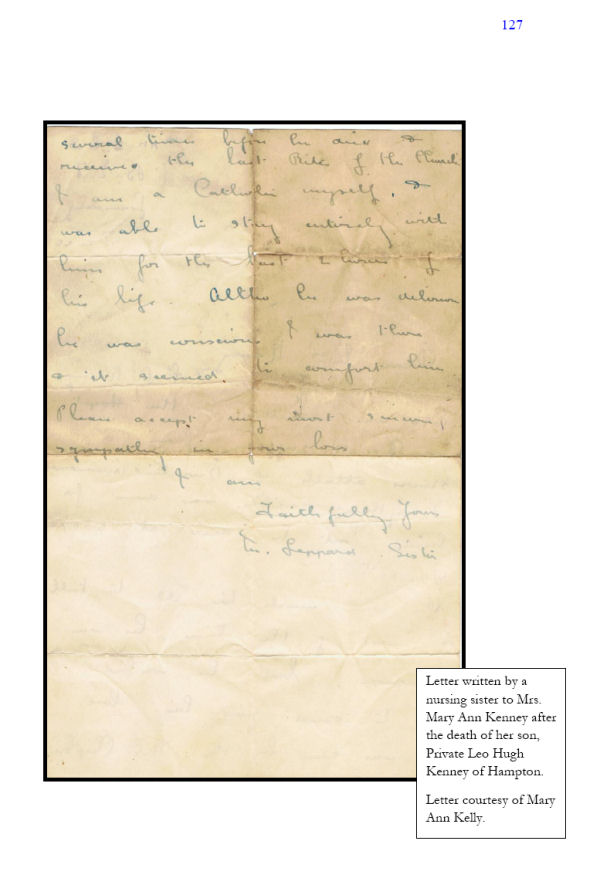 127
several times before he died &
received the last Rites of the Church
I am a Catholic myself, &
was able to stay entirely with
him for the last 2 hours of
his life. Altho he was delirious
he was conscious I was there
& it seemed to comfort him.
Please accept my most sincere
sympathy in your loss
I am
Faithfully Yours
M. Leppard. Sister
Letter written by a
nursing sister to Mrs.
Mary Ann Kenney after
the death of her son,
Private Leo Hugh
Kenney of Hampton.
Letter courtesy of Mary
Ann Kelly.